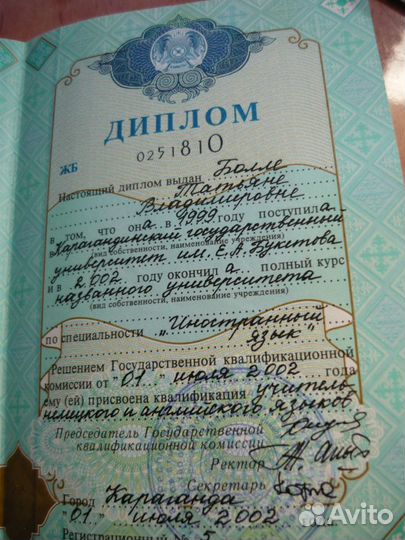 ДИПЛОМ
ЖБ
0251810
Настоящий диплом выдан Болле
Татьяне
Владимировне
в том, что она в 9999 году поступила
в Карагандинский государственный
(вид собственности, наименование учреждения)
университет им. Е.А. Букетова
и в 2002 году окончила полный курс
названного университета
(вид собственности, наименование учреждения)
по специальности "Иностранный
язык"
Решением Государственной квалификационной
комиссии от "01" июля 2002 года
ему (ей) присвоена квалификация учитель
немецкого и английского языков
Председатель Государственной
квалификационной комиссии
Ректор
Секретарь
Город Караганда
"01" июля 2002 г.
Регистрационный № 5
Avito